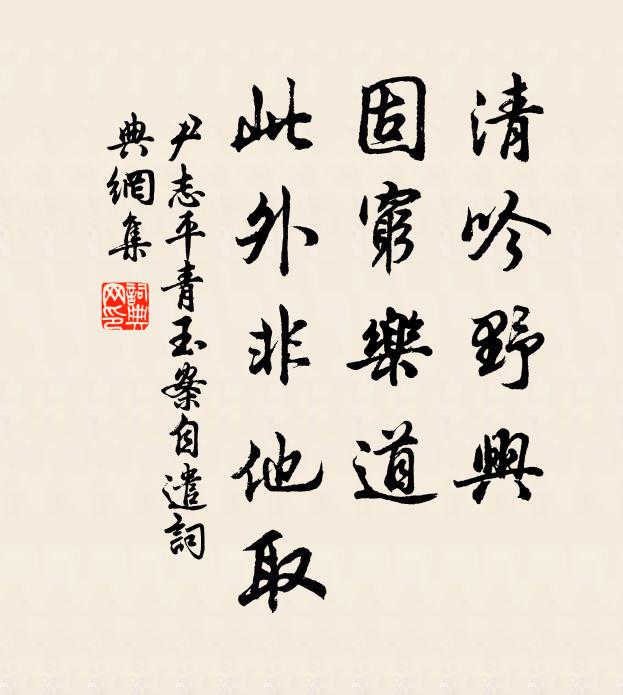 清吟野興
固窮樂道
此外非他取
尹志平青玉案自遣詞
典網集
詞典網印